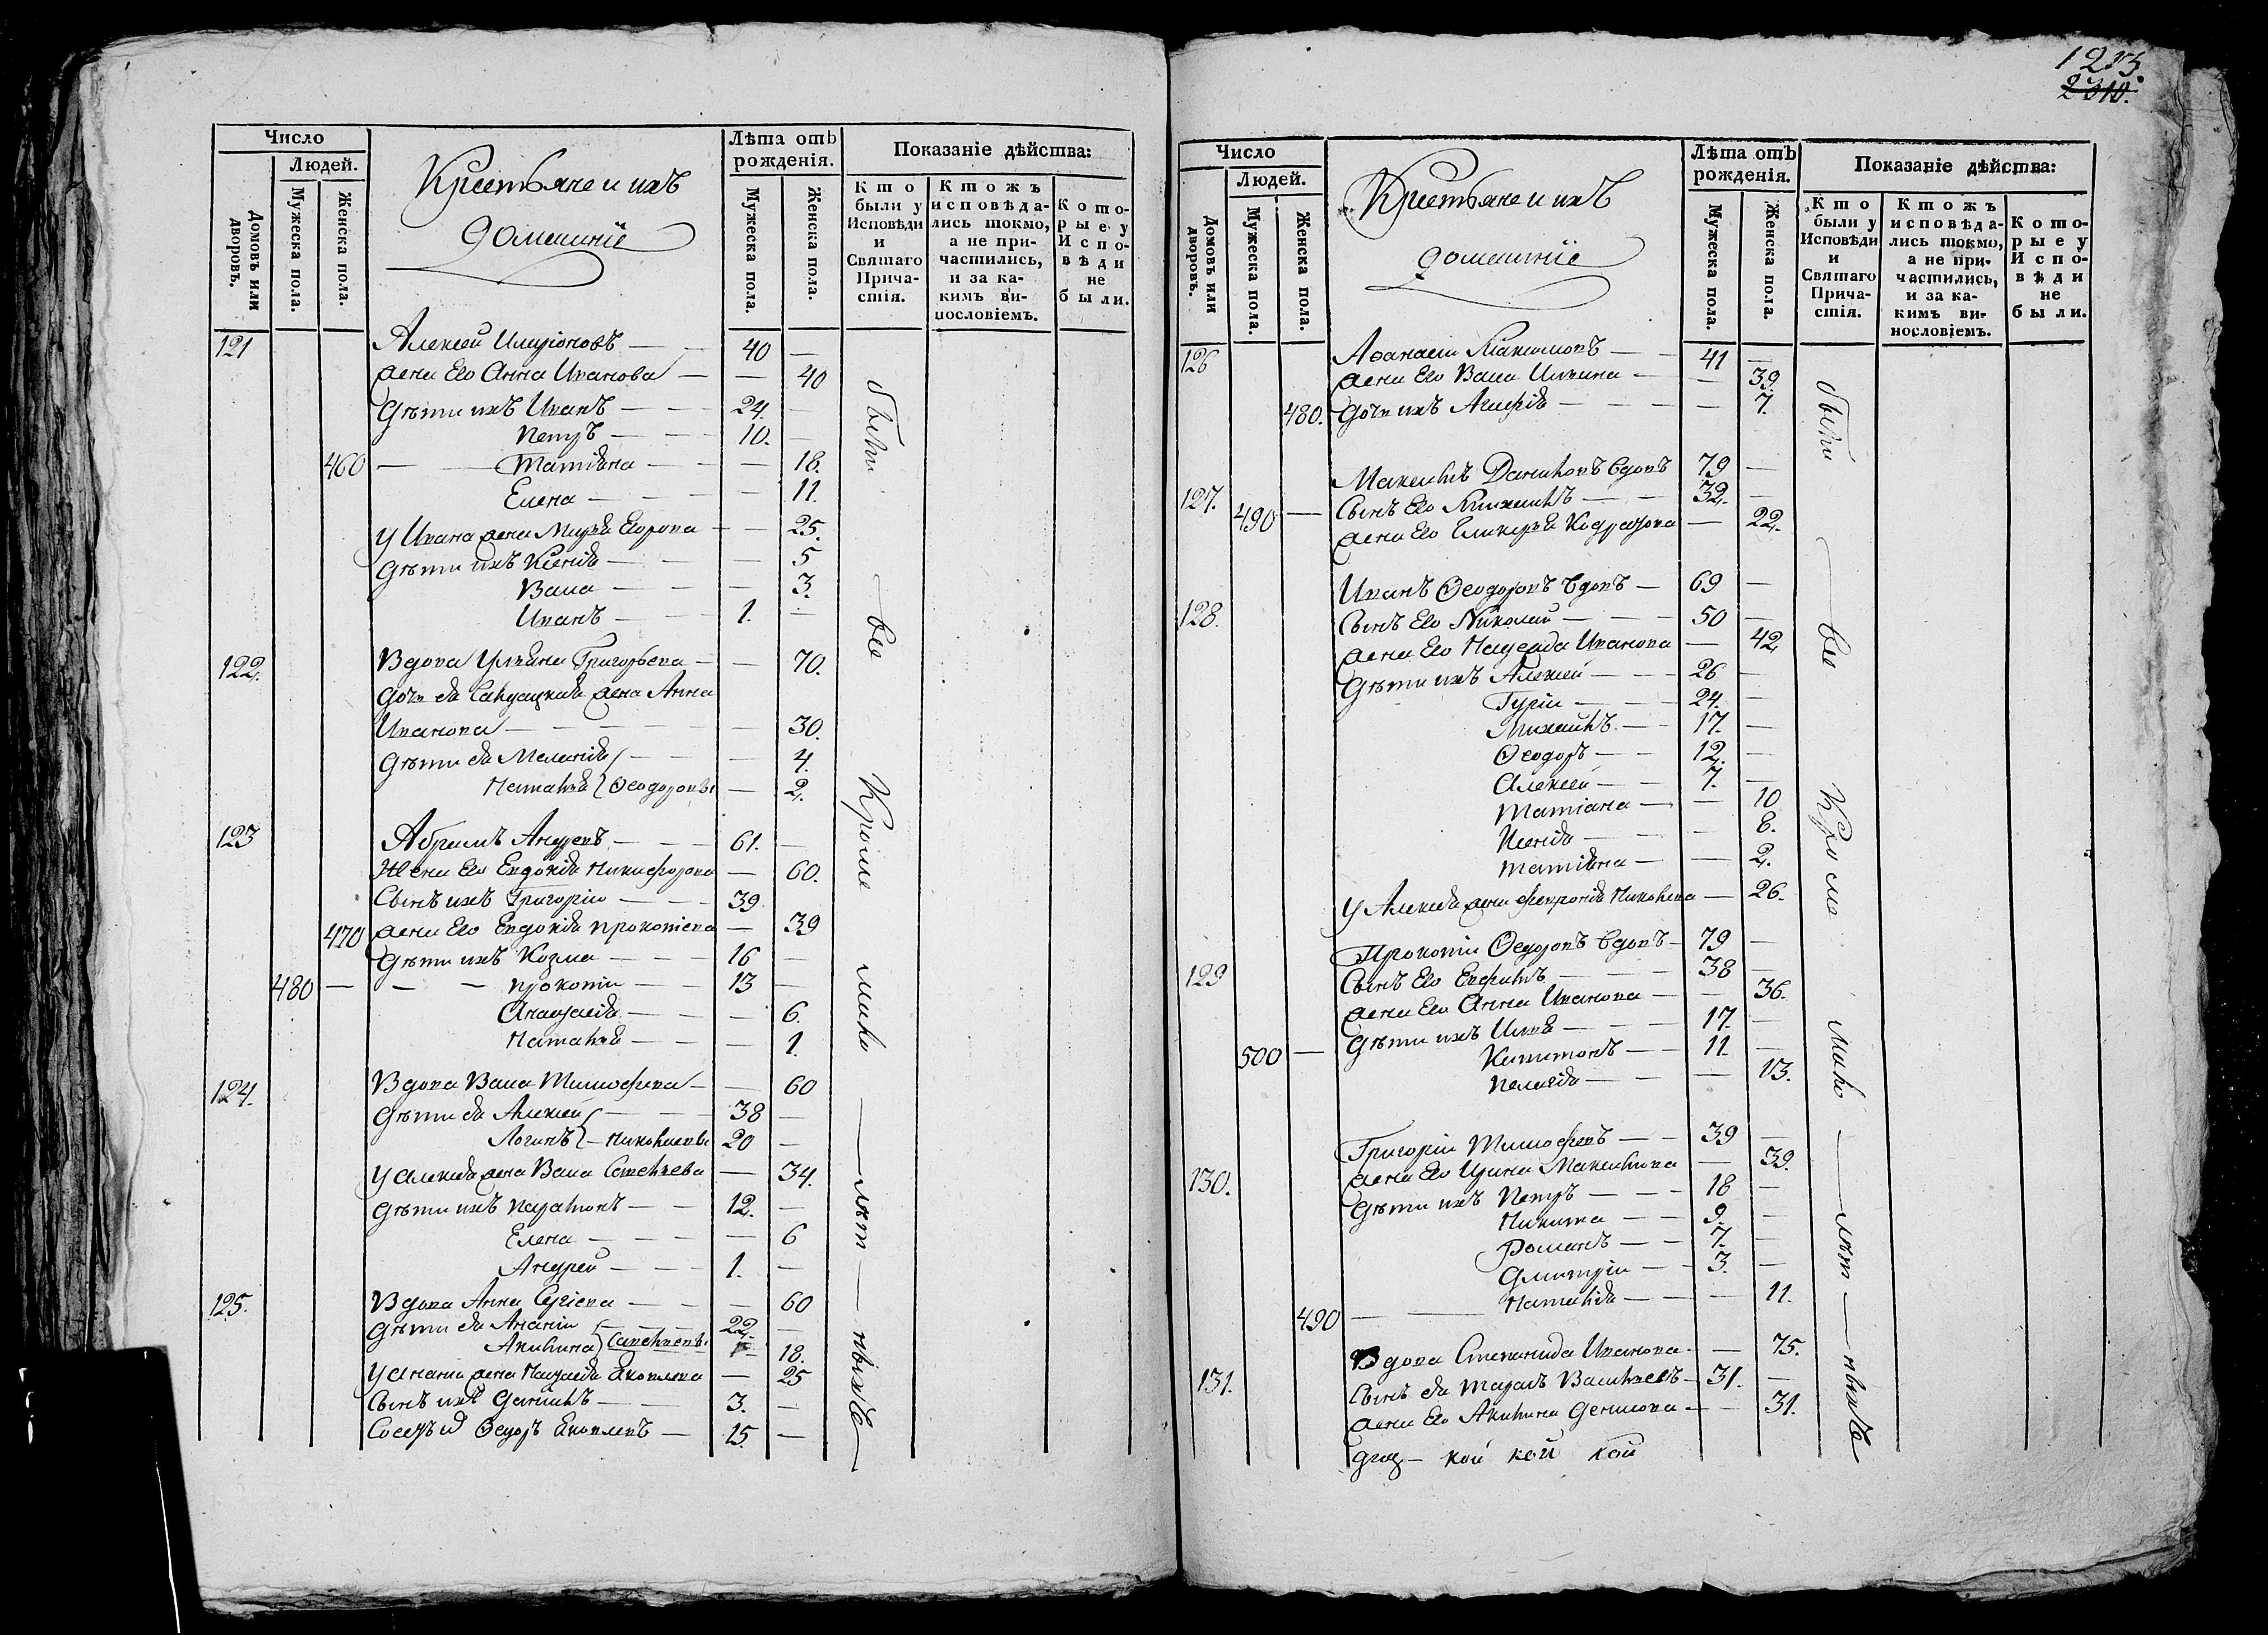 Число
Людей.
Домовъ или дворовъ.
Мужеска пола.
Женска пола.
Крестьяне и ихъ
домашніе
Лѣта отъ
рожденія.
Мужеска пола.
Женска пола.
Показаніе дѣйства:
Кто были у Исповѣди и Святаго Причастія.
Ктожъ исповѣдались токмо, а не причастились, и за какимъ винословіемъ.
Которые у Исповѣди не были.
121 Алексей Иларіоновъ — 40 —
жена Его Анна Иванова — — 40
дѣти ихъ Иванъ — 24. —
Петръ — 10. —
460 — Татіана — — 18.
Елена — — 11.
у Ивана жена Марѳа — — 25.
дѣти ихъ Ксенія — — 5
Васа — — 3.
Иванъ — 1. —
122. Вдова Улияна Григорьева — — 70.
дочь ея Салдацкая жена Анна
Иванова — — 30.
дѣти ея Меланія — — 4.
Наталья } Ѳеодоровы — 2.
123 Абрамъ Андревъ — 61. —
Жена Его Евдокія Никифорова — 60.
Сынъ ихъ Григорій — 39
470 жена Его Евдокія Прокопіева — 39
дѣти ихъ Козма — 16 —
480 — Прокопій — 13 —
Анастасія — — 6.
Наталья — — 1.
124. Вдова Васа Тимофеева — — 60
дѣти ея Алексей — 38 —
Логинъ } Николаевы 20 —
у Алексея жена Васа Савельева — 34.
дѣти ихъ Паратонъ — 12. —
Елена — — 6
Андрей — 1. —
125. Вдова Анна Сергіева — — 60
дѣти ея Ананій — 22. —
Акилина } Савельевы 18.
у Анания жена Настасія Яковлева — 25
Сынъ ихъ Данилъ — 3. —
Соседъ Ѳедоръ Яковлевъ — 15. —
были все Кроме мало лѣт ныхъ
1213.
2310.
Число
Людей.
Домовъ или дворовъ.
Мужеска пола.
Женска пола.
Крестьяне и ихъ
домашніе
Лѣта отъ
рожденія.
Мужеска пола.
Женска пола.
Показаніе дѣйства:
Кто были у Исповѣди и Святаго Причастія.
Ктожъ исповѣдались токмо, а не причастились, и за какимъ винословіемъ.
Которые у Исповѣди не были.
126 Аѳанасій Максимовъ — 41 —
жена Его Васа Ильина — — 39.
480. дочь ихъ Агафія — — 7.
Максимъ Даниловъ вдовъ 79 —
127. Сынъ Его Михаилъ — 32. —
490 — жена Его Гликерья — 22.
Иванъ Ѳеодоровъ вдовъ — 69 —
128. Сынъ Его Николай — 50 —
жена Его Надежда Иванова — 42
дѣти ихъ Алексей — 26 —
Гурій — 24. —
Михаилъ — 17. —
Ѳеодоръ — 12. —
Алексей — 7. —
Татіана — — 10
Ксенія — — 8.
Татіана — — 2.
у Алексея жена Февронія — 26.
Прокопій Ѳедоровъ вдовъ — 79 —
129 Сынъ Его Евфимъ — 38 —
жена Его Анна Иванова — — 36.
дѣти ихъ Илья — 17. —
500 — Капитонъ — 11. —
Пелагія — — 13.
Григорій Тимофеевъ — 39 —
130. жена Его Ирина — 39.
дѣти ихъ Петръ — 18 —
Никита — 9. —
Романъ — 7. —
Дмитрій — 3. —
490 — Наталія — — 11.
Вдова Степанида Иванова — — 75.
131. Сынъ ея Тарасъ Васильевъ — 31. —
жена Его Акилина Денисова — — 31.
кой кой кой
были все Кроме мало лѣт ныхъ